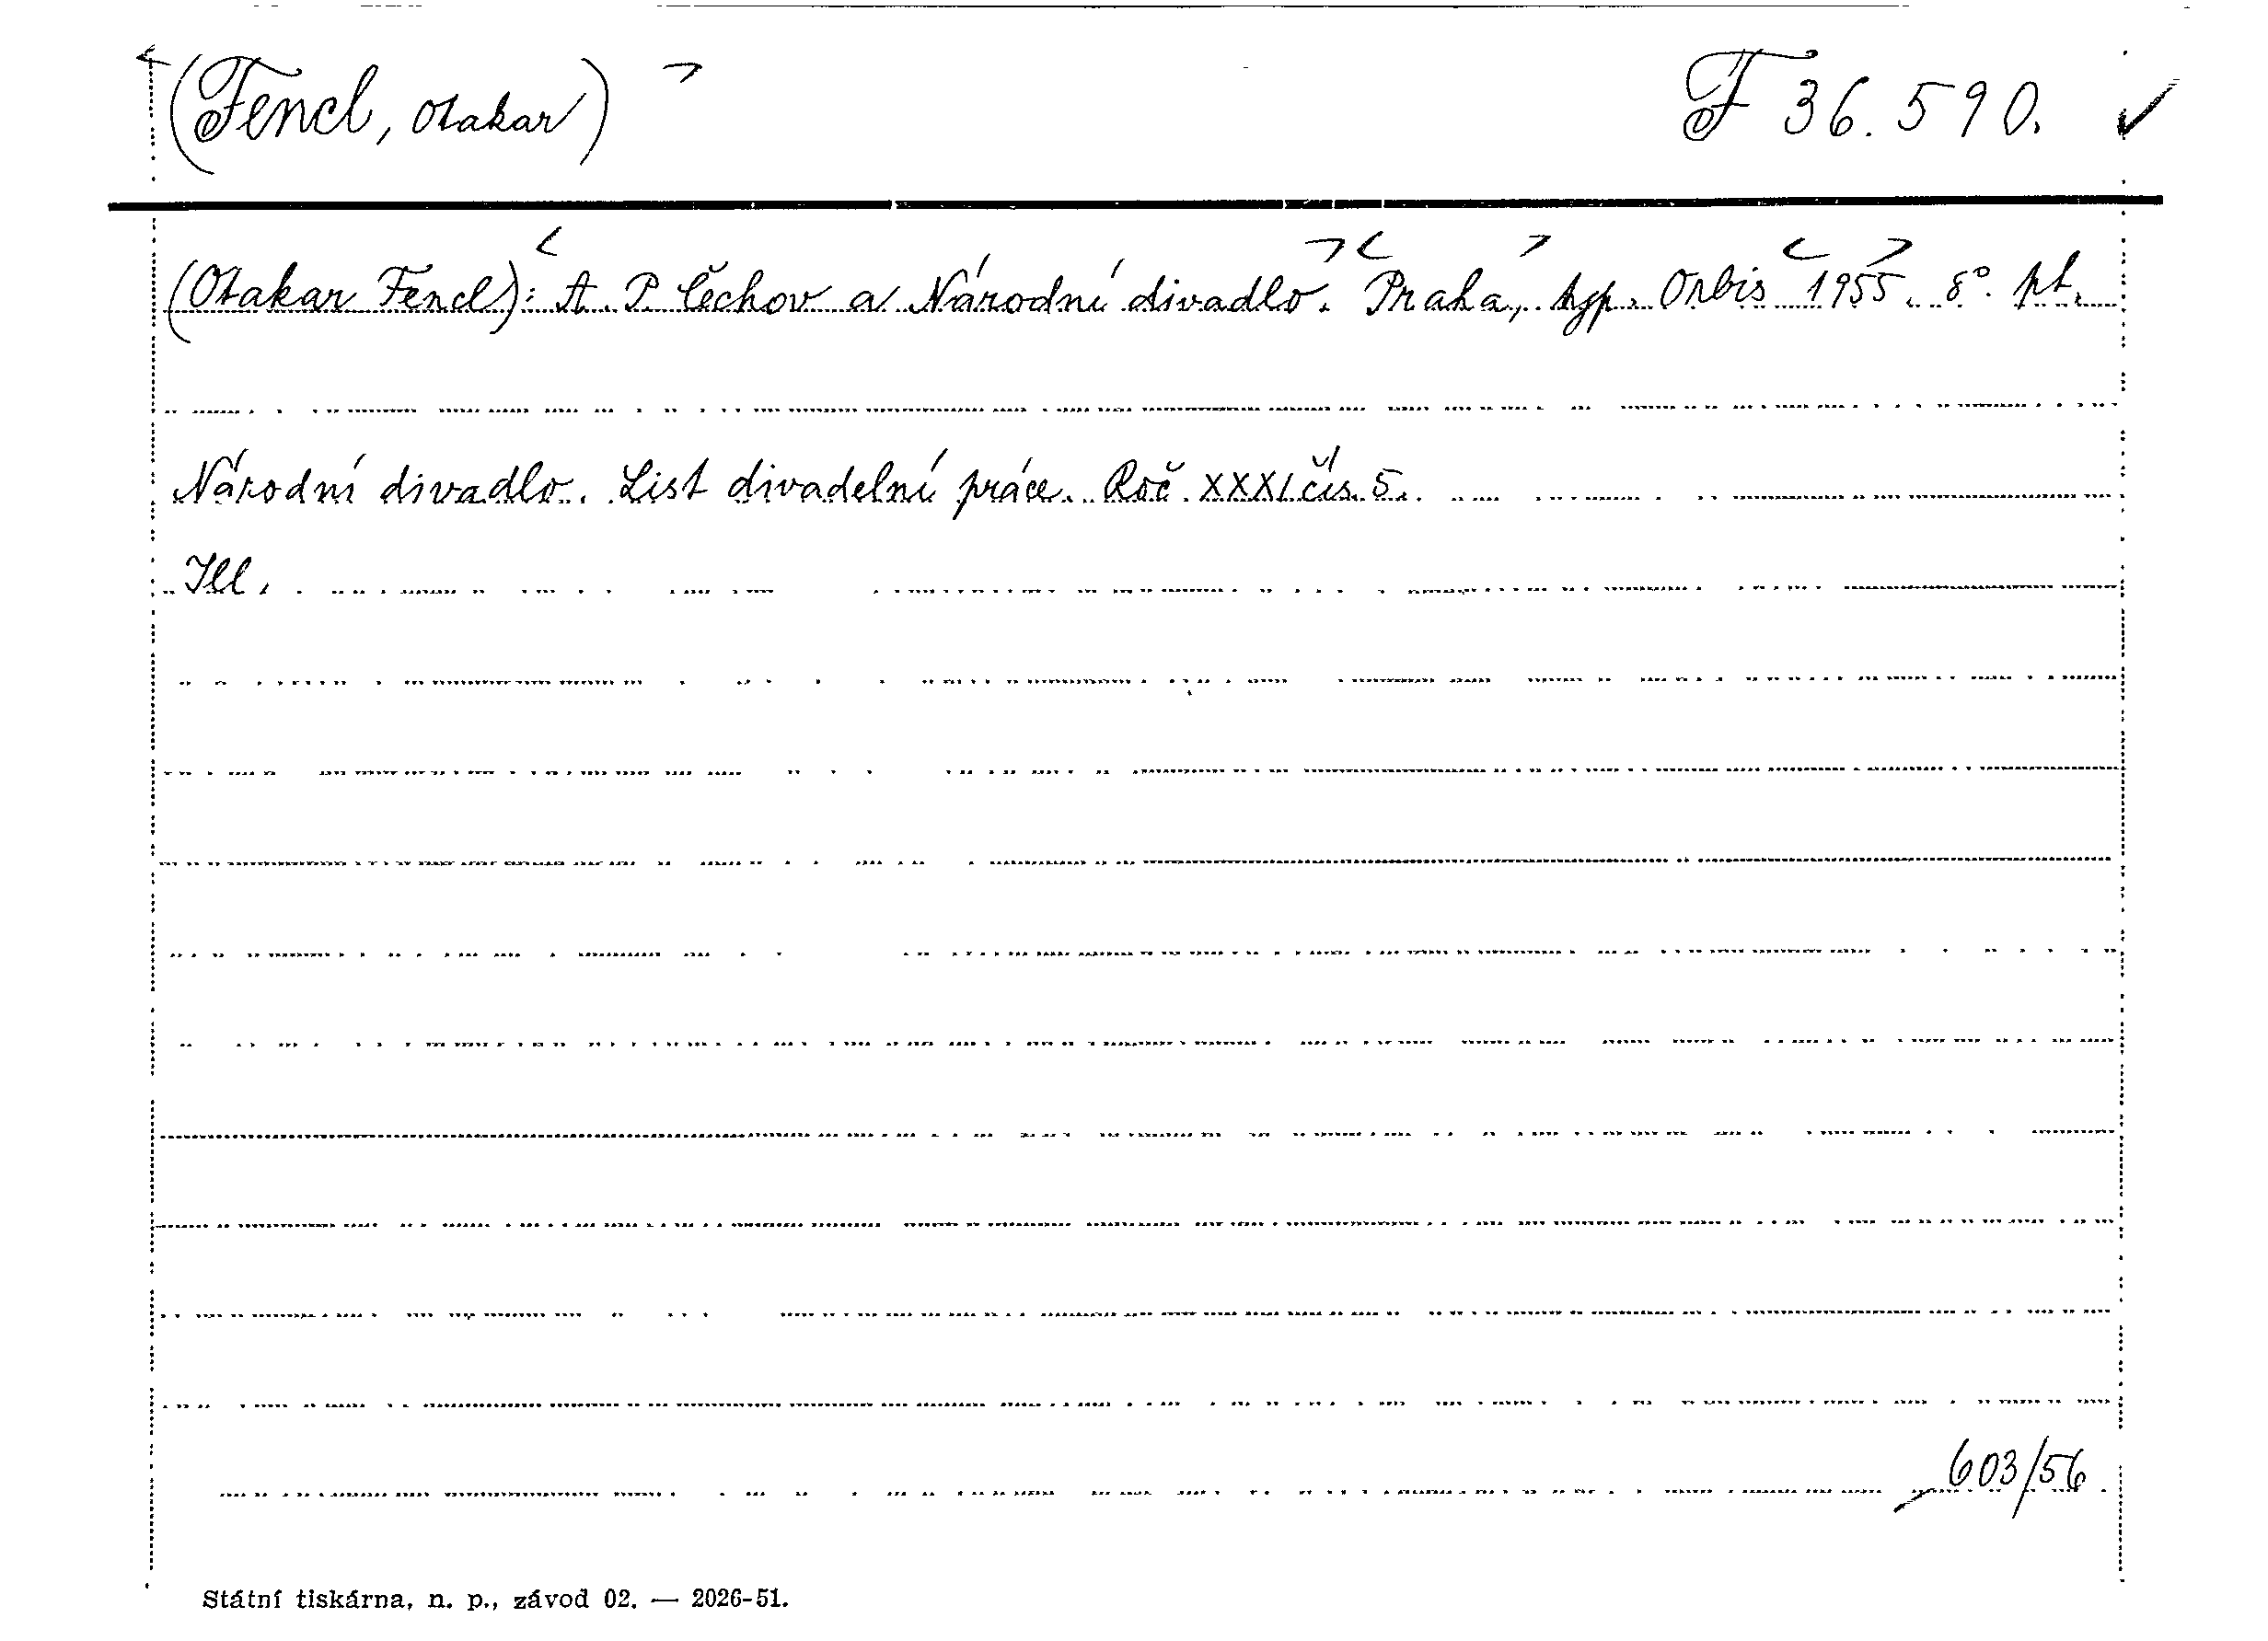 (Fencl, Otakar)
F 36.590. ✓
(Otakar Fencl): A. P. Čechov a Národní divadlo. Praha, typ. Orbis 1955. 8°. pt.
Národní divadlo. List divadelní práce. Roč. XXXI čís. 5.
Ill.
603/56
Státní tiskárna, n. p., závod 02. — 2026-51.